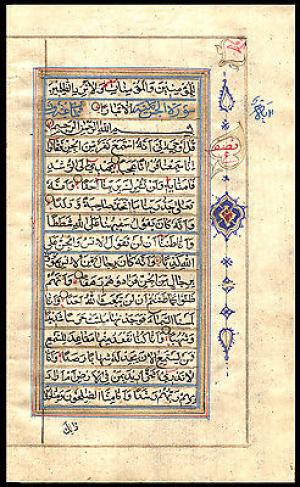 والمؤمنات ولا تزد الظلمين
الا تبارا سورة الجن
بسم الله الرحمن الرحيم
قل اوحي الي انه استمع نفر من الجن فقالوا
انا سمعنا قرانا عجبا يهدي الى الرشد
فامنا به ولن نشرك بربنا احدا وانه
تعلى جد ربنا ما اتخذ صاحبة ولا ولدا
وانه كان يقول سفيهنا على الله شططا
وانا ظننا ان لن تقول الانس والجن على
الله كذبا وانه كان رجال من الانس يعوذون
برجال من الجن فزادوهم رهقا وانهم
ظنوا كما ظننتم ان لن يبعث الله احدا وانا
لمسنا السماء فوجدنها ملئت حرسا شديدا
وشهبا وانا كنا نقعد منها مقاعد للسمع
فمن يستمع الان يجد له شهابا رصدا وانا
لا ندري اشر اريد بمن في الارض ام اراد
بهم ربهم رشدا وانا منا الصلحون ومنا
نصف